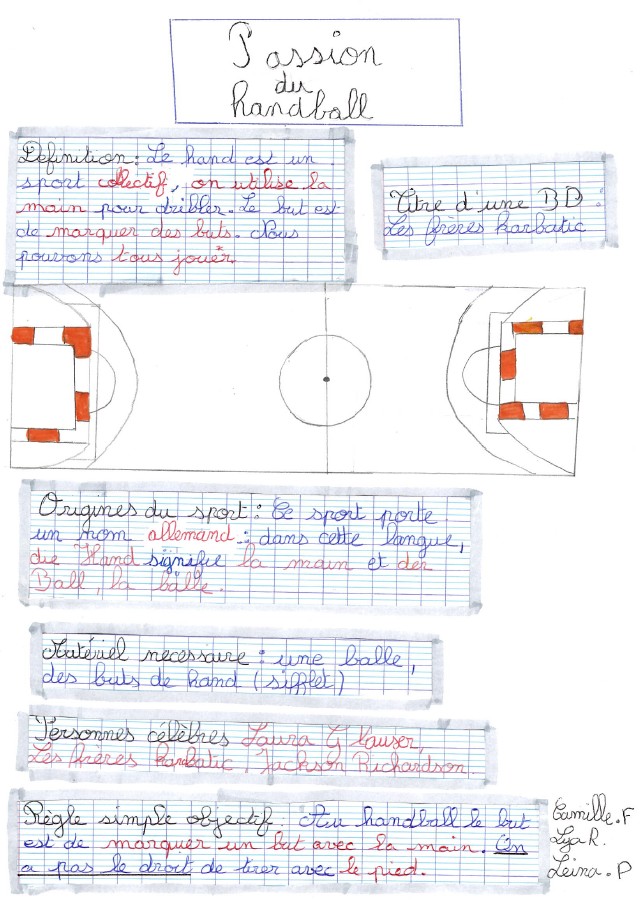 Passion
du
handball
Définition: Le hand est un
sport collectif, on utilise la
main pour dribler. Le but est
de marquer des buts. Nous
pouvons tous jouer.
Titre d'une BD :
Les frères karbatic
Origines du sport : Ce sport porte
un nom allemand : dans cette langue,
die Hand signifie la main et der
Ball, la balle.
Matériel necessaire : une balle,
des buts de hand (sifflet)
Personnes célèbres Laura Glauser,
Les frères karbatic, Jackson Richardson.
Règle simple objectif : Au handball le but
est de marquer un but avec la main. On
a pas le droit de tirer avec le pied.
Camille.F
Lya R.
Leina.P